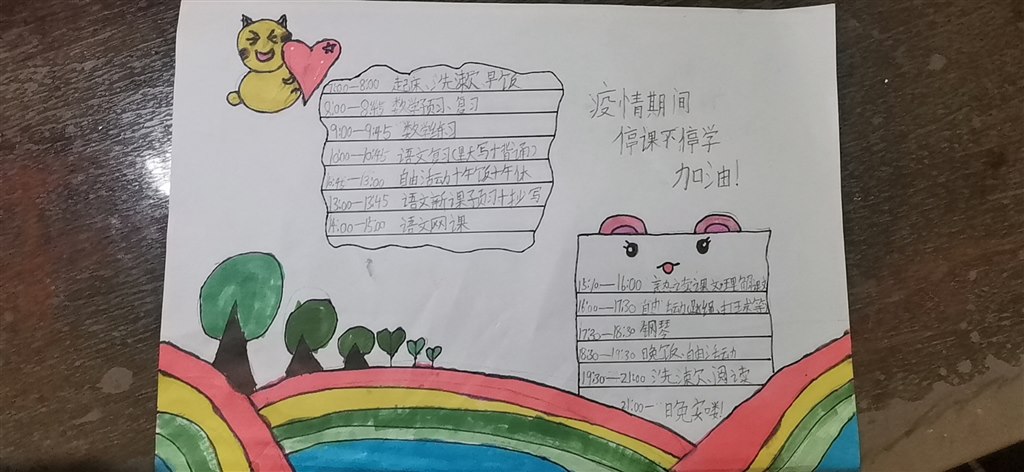 7:00—8:00 起床、洗漱、早饭
8:00—8:45 数学预习、复习
9:00—9:45 数学练习
10:00—10:45 语文复习(默写+背诵)
10:45—13:00 自由活动+午饭+午休
13:00—13:45 语文新课预习+抄写
14:00—15:00 语文网课
疫情期间
停课不停学
加油!
15:10—16:00 读课文理解
16:00—17:30 自由活动(跳绳、打羽毛球等)
17:30—18:30 钢琴
18:30—19:30 晚饭、自由活动
19:30—21:00 洗漱、阅读
21:00— 晚安喽!